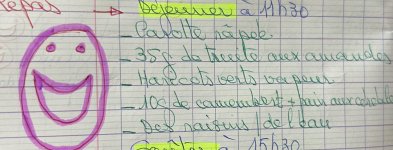 repas
Déjeuner à 11h30
- Carotte rápée.
- 35g de truite aux amandes
- Haricots verts vapeur.
- 10g de camembert + pain aux céréales
- Des raisins / de l'eau
Goûter à 15h30